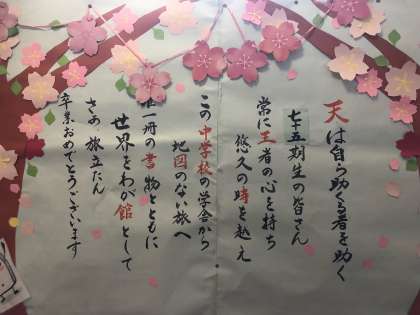 天は自ら助くる者を助く
七十五期生の皆さん
常に王者の心を持ち
悠久の時を越え
この中学校の学舎から
地図のない旅へ
一冊の書物とともに
世界をわが館として
さあ、旅立たん
卒業おめでとうございます